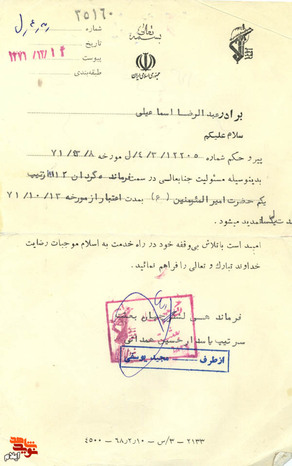 بسمه تعالی
جمهوری اسلامی ایران
شماره ۳۵۱۶۰
تاریخ ۱۳۷۱/۱۲/۱۴
پیوست
طبقه‌بندی
برادر عبدالرضا اسماعیلی
سلام علیکم
پیرو حکم شماره ۱۲۲۰۵/۳/۴/ل مورخه ۷۱/۹۳/۸
بدینوسیله مسئولیت جنابعالی در سمت فرمانده گردان ۹۱۲ تیپ
یکم حضرت امیر المئومنین (ع) بمدت اعتبار از مورخه ۷۱/۱۰/۱۳
تمدید میشود.
امید است با تلاش بی‌وقفه خود در راه خدمت به اسلام موجبات رضایت
خداوند تبارک و تعالی را فراهم نمائید.
فرماندهی
سرتیپ پاسدار حسین همدانی
از طرف مجید یوسفی
۲۱۳۳ - ۳/س - ۶۸/۲/۱۰ - ۴۵۰۰
نوید شاهد
ایلام